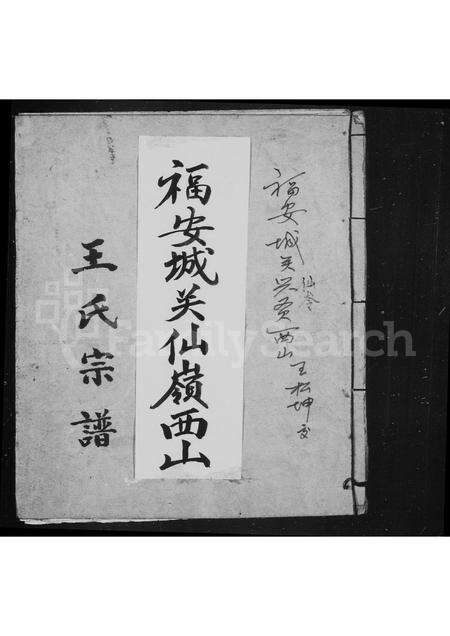 福安城关西山王松坤
仙岭
福安城关仙嶺西山
王氏宗譜
FamilySearch